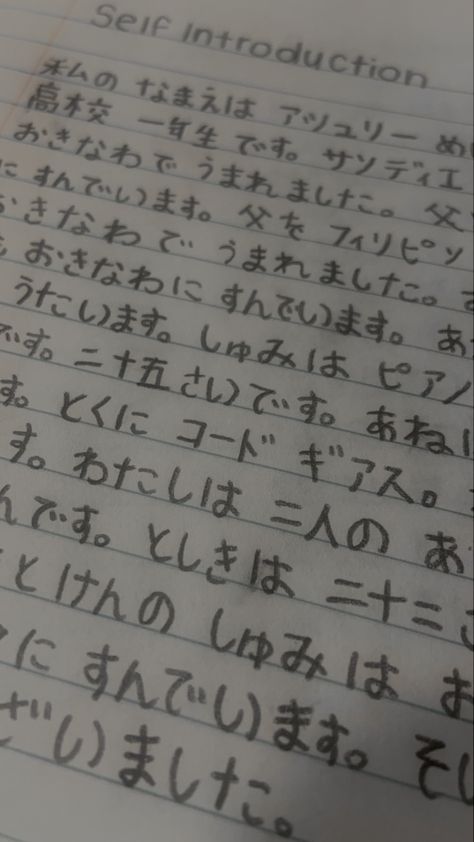 Self Introduction
私の なまえは アシュリー
高校 一年生 です。 サンディエ
おきなわで うまれました。 父
に すんでいます。 父を フィリピン
おきなわ で うまれました。
おきなわに すんでいます。 あ
うたいます。 しゅみは ピアノ
です。 二十五さいです。 あねは
す。 とくに コードギアス。
す。 わたしは 二人の あ
んです。 としきは 二十二
とけんの しゅみは お
に すんでいます。 そし
ざいました。